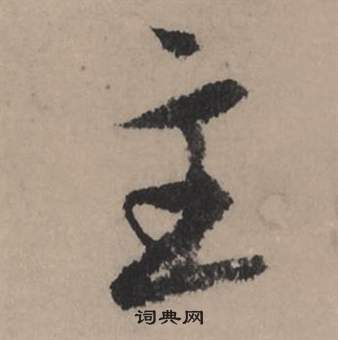 主
词典网